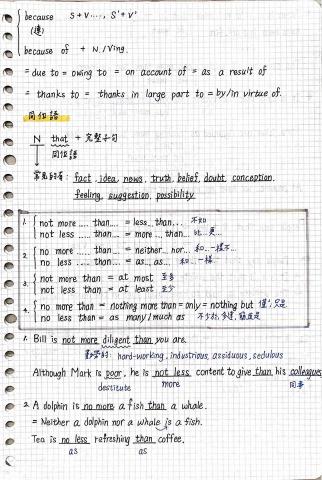 because S+V...., S'+V'
(連)
because of + N/Ving.
= due to = owing to = on account of = as a result of
= thanks to = thanks in large part to = by/in virtue of.
同位語
N that + 完整子句
同位語
常見的有: fact, idea, news, truth, belief, doubt, conception,
feeling, suggestion, possibility
1. not more .... than.... = less...than... 不如
not less .... than.... = more...than... 比...更...
2. no more .... than.... = neither...nor... 和...一樣不...
no less .... than.... = as...as... 和...一樣
3. not more than = at most 至多
not less than = at least 至少
4. no more than = nothing more than = only = nothing but 僅,只是
no less than = as many/much as 不少於,多達
1. Bill is not more diligent than you are.
勤勞的: hard-working, industrious, assiduous, sedulous
Although Mark is poor, he is not less content to give than his colleagues
destitute more 同事
2. A dolphin is no more a fish than a whale.
= Neither a dolphin nor a whale is a fish.
Tea is no less refreshing than coffee.
as as